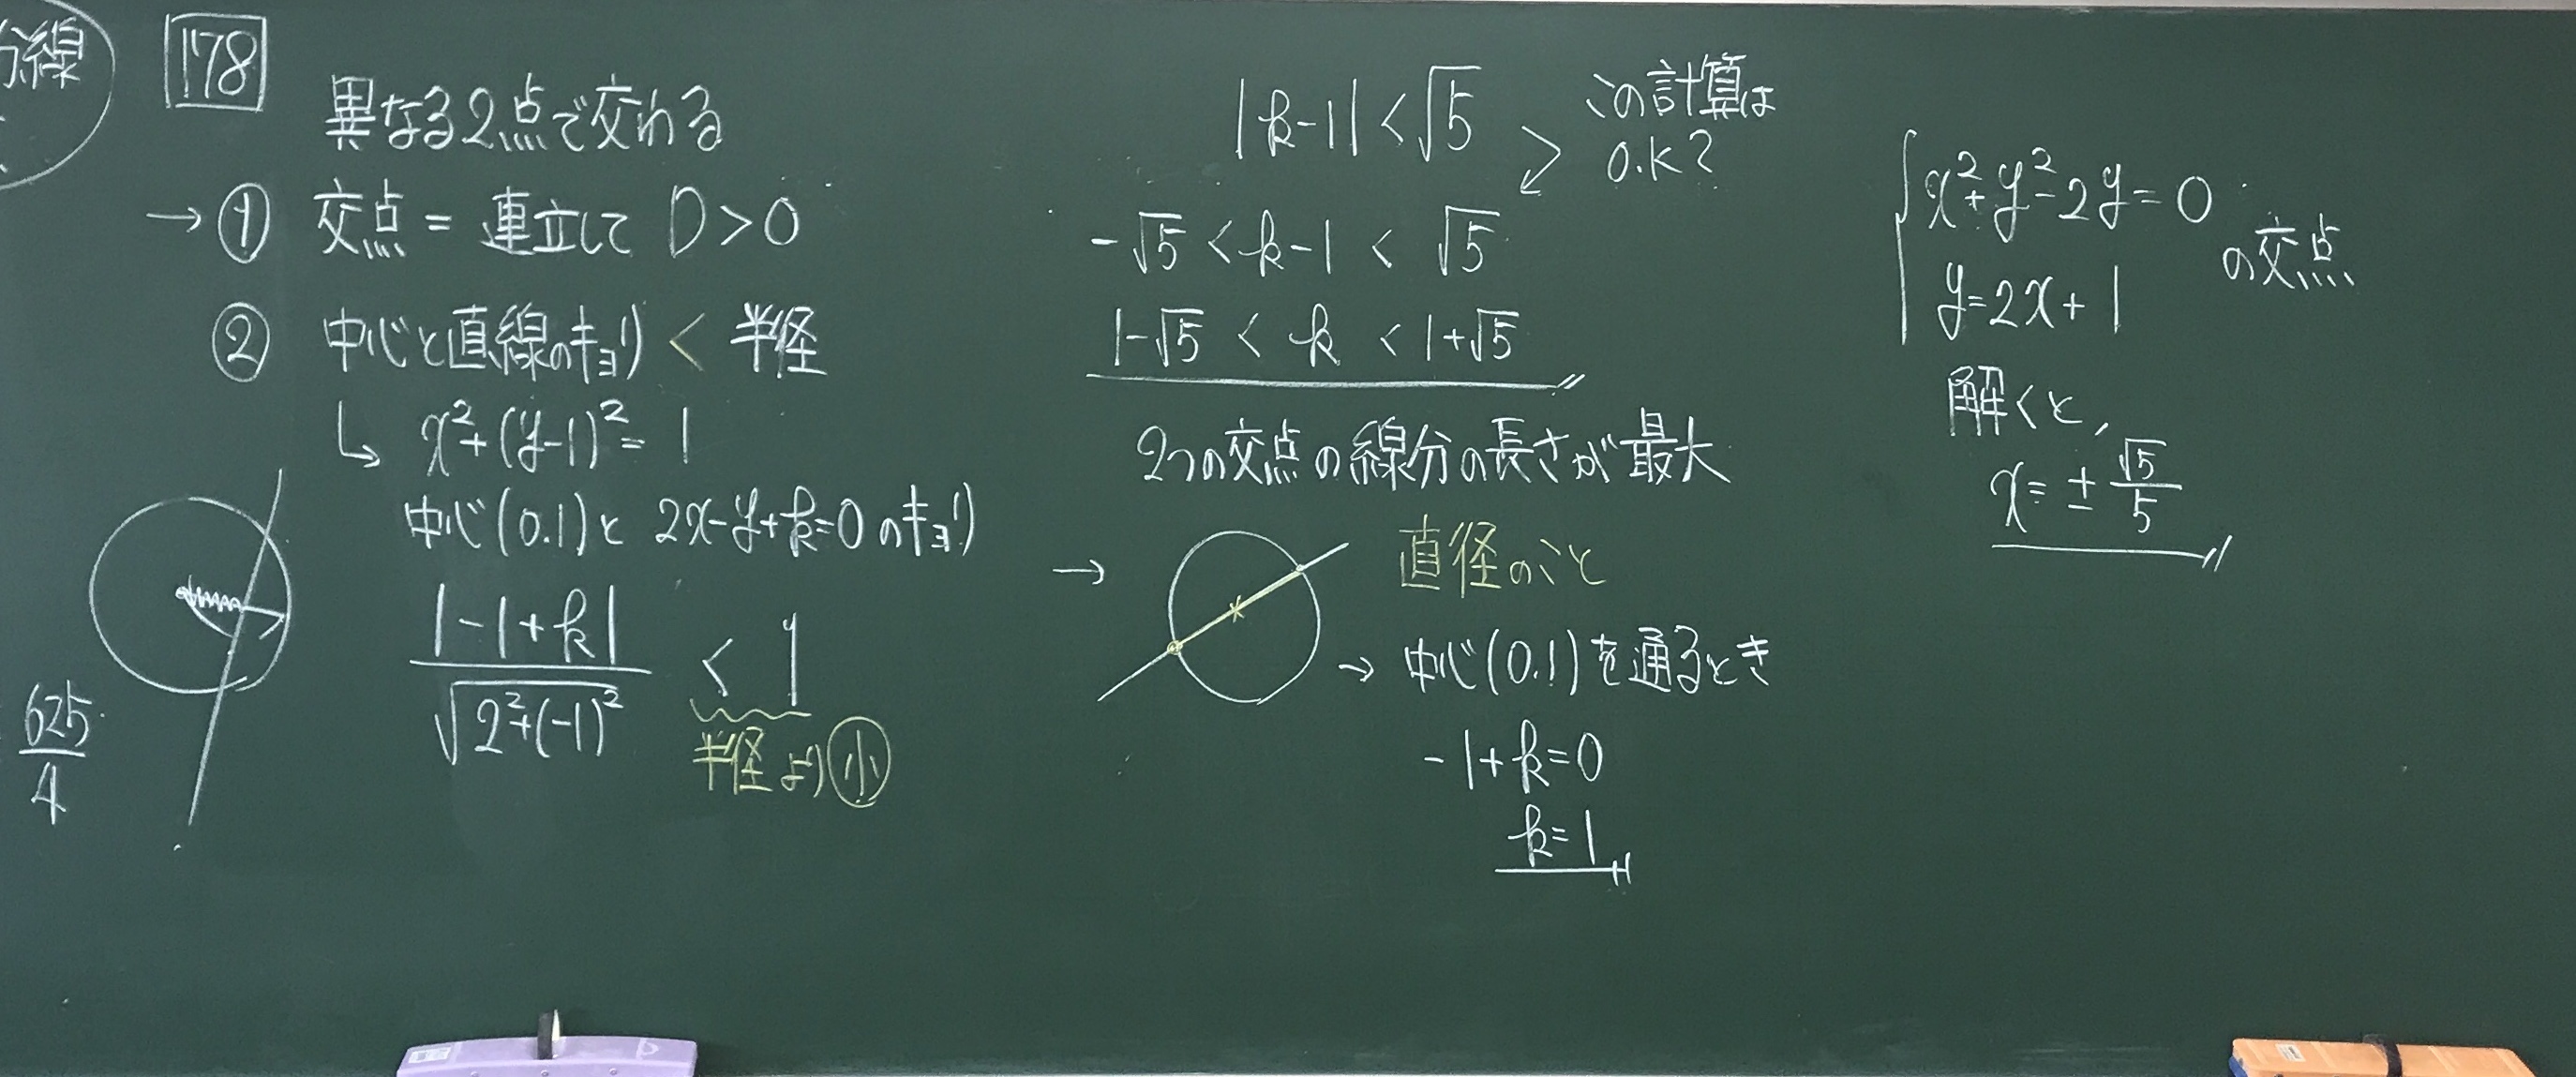 分線
178
異なる2点で交わる
→ ① 交点 = 連立して D > 0
② 中心と直線のキョリ < 半径
↳ x²+(y-1)²= 1
中心(0.1)と 2x-y+k=0のキョリ
|-1+k| / √2²+(-1)² < 1
半径より小
625/4
|k-1| < √5
この計算は
O.K?
-√5 < k-1 < √5
1-√5 < k < 1+√5
2つの交点の線分の長さが最大
→ 直径のこと
→ 中心(0.1)を通るとき
-1+k=0
k=1
x²+y²-2y=0
y=2x+1
の交点
解くと,
x=±√5/5